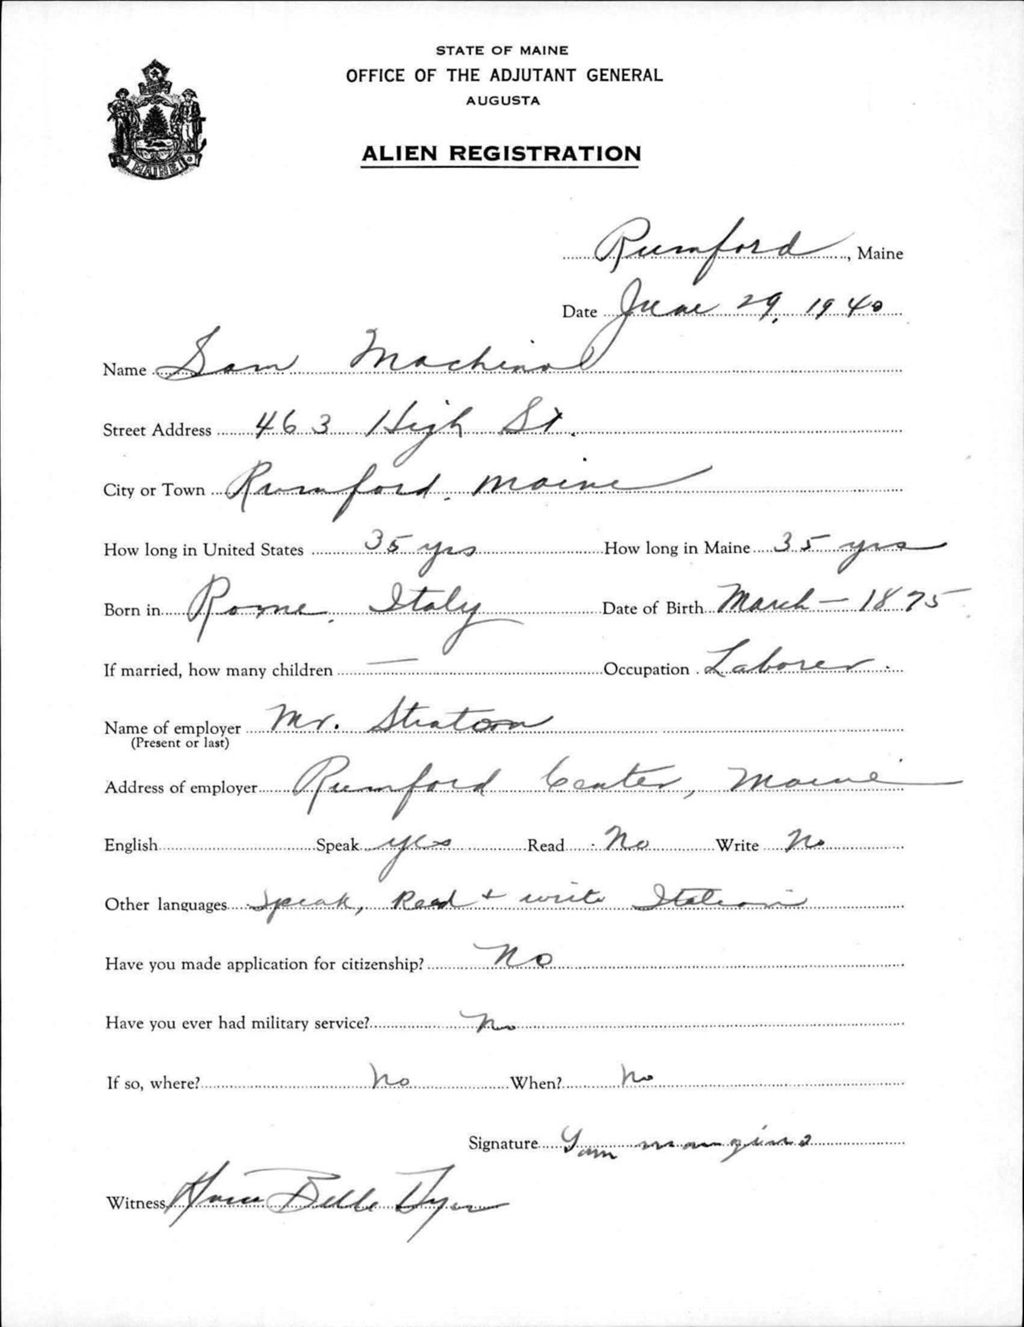 STATE OF MAINE
OFFICE OF THE ADJUTANT GENERAL
AUGUSTA
ALIEN REGISTRATION
MAINE
Rumford, Maine
Date June 29, 1940
Name Sam
Street Address 463 High St.
City or Town Rumford, Maine
How long in United States 35 yrs How long in Maine 35 yrs
Born in Rome, Italy Date of Birth March - 1875
If married, how many children — Occupation Laborer.
Name of employer Mr.
(Present or last)
Address of employer Rumford Center, Maine
English Speak yes Read No Write No
Other languages Speak, Read + write Italian
Have you made application for citizenship? No
Have you ever had military service? No
If so, where? No When? No
Signature Sam
Witness Belle Dyer